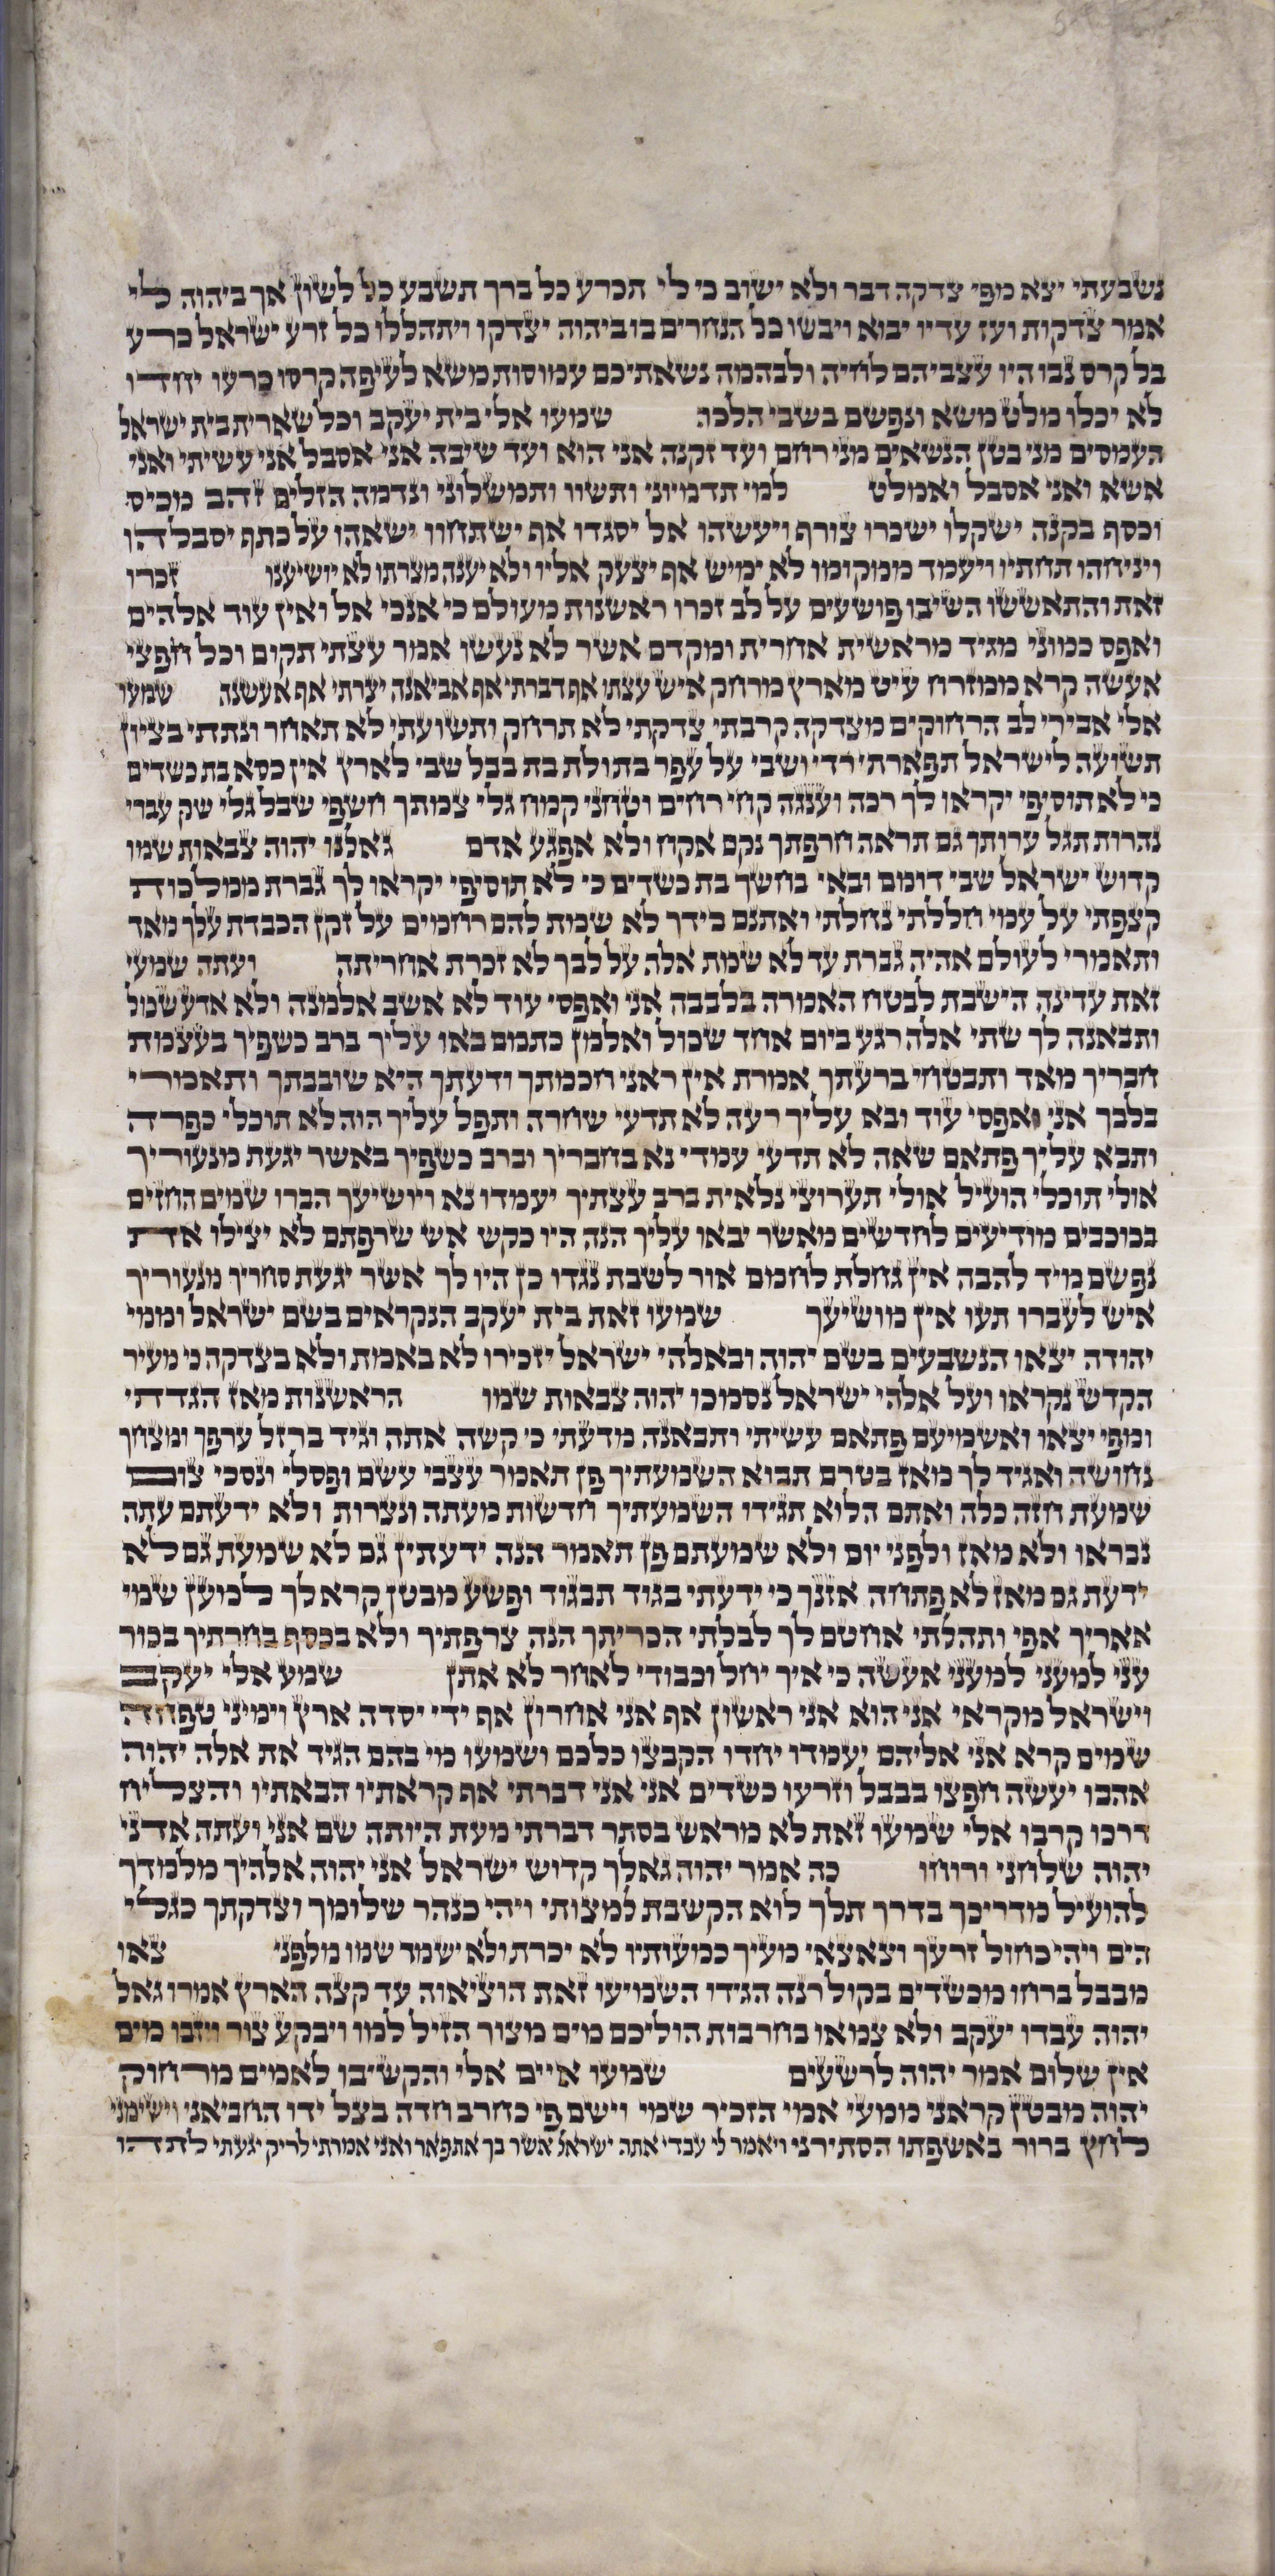 נשבעתי יצא מפי צדקה דבר ולא ישוב כי לי תכרע כל ברך תשבע כל לשון אך ביהוה לי
אמר צדקות ועז עדיו יבוא ויבשו כל הנחרים בו ביהוה יצדקו ויתהללו כל זרע ישראל כרע
בל קרס נבו היו עצביהם לחיה ולבהמה נשאתיכם עמוסות משא לעיפה קרסו כרעו יחדו
לא יכלו מלט משא ונפשם בשבי הלכה שמעו אלי בית יעקב וכל שארית בית ישראל
העמסים מני בטן הנשאים מני רחם ועד זקנה אני הוא ועד שיבה אני אסבל אני עשיתי ואני
אשא ואני אסבל ואמלט למי תדמיוני ותשוו ותמשלוני ונדמה הזלים זהב מכיס
וכסף בקנה ישקלו ישכרו צורף ויעשהו אל יסגדו אף ישתחוו ישאהו על כתף יסבלהו
ויניחהו תחתיו ויעמד ממקומו לא ימיש אף יצעק אליו ולא יענה מצרתו לא יושיענו זכרו
זאת והתאששו השיבו פושעים על לב זכרו ראשנות מעולם כי אנכי אל ואין עוד אלהים
ואפס כמוני מגיד מראשית אחרית ומקדם אשר לא נעשו אמר עצתי תקום וכל חפצי
אעשה קרא ממזרח עיט מארץ מרחק איש עצתו אף דברתי אף אביאנה יצרתי אף אעשנה שמעו
אלי אבירי לב הרחוקים מצדקה קרבתי צדקתי לא תרחק ותשועתי לא תאחר ונתתי בציון
תשועה לישראל תפארתי רדי ושבי על עפר בתולת בת בבל שבי לארץ אין כסא בת כשדים
כי לא תוסיפי יקראו לך רכה וענגה קחי רחים וטחני קמח גלי צמתך חשפי שבל גלי שק עברי
נהרות תגל ערותך גם תראה חרפתך נקם אקח ולא אפגע אדם גאלנו יהוה צבאות שמו
קדוש ישראל שבי דומם ובאי בחשך בת כשדים כי לא תוסיפי יקראו לך גברת ממלכות
קצפתי על עמי חללתי נחלתי ואתנם בידך לא שמת להם רחמים על זקן הכבדת עלך מאד
ותאמרי לעולם אהיה גברת עד לא שמת אלה על לבך לא זכרת אחריתה ועתה שמעי
זאת עדינה הישבת לבטח האמרה בלבבה אני ואפסי עוד לא אשב אלמנה ולא אדע שכול
ותבאנה לך שתי אלה רגע ביום אחד שכול ואלמן כתמם באו עליך ברב כשפיך בעצמת
חבריך מאד ותבטחי ברעתך אמרת אין ראני חכמתך ודעתך היא שובבתך ותאמרי
בלבך אני ואפסי עוד ובא עליך רעה לא תדעי שחרה ותפל עליך הוה לא תוכלי כפרה
ותבא עליך פתאם שאה לא תדעי עמדי נא בחבריך וברב כשפיך באשר יגעת מנעוריך
אולי תוכלי הועיל אולי תערוצי נלאית ברב עצתיך יעמדו נא ויושיעך הברו שמים החזים
בכוכבים מודיעים לחדשים מאשר יבאו עליך הנה היו כקש אש שרפתם לא יצילו את
נפשם מיד להבה אין גחלת לחמם אור לשבת נגדו כן היו לך אשר יגעת סחריך מנעוריך
איש לעברו תעו אין מושיעך שמעו זאת בית יעקב הנקראים בשם ישראל וממי
יהודה יצאו הנשבעים בשם יהוה ובאלהי ישראל יזכירו לא באמת ולא בצדקה כי מעיר
הקדש נקראו ועל אלהי ישראל נסמכו יהוה צבאות שמו הראשנות מאז הגדתי
ומפי יצאו ואשמיעם פתאם עשיתי ותבאנה מדעתי כי קשה אתה וגיד ברזל ערפך ומצחך
נחושה ואגיד לך מאז בטרם תבוא השמעתיך פן תאמר עצבי עשם ופסלי ונסכי צום
שמעת חזה כלה ואתם הלוא תגידו השמעתיך חדשות מעתה ונצרות ולא ידעתם עתה
נבראו ולא מאז ולפני יום ולא שמעתם פן תאמר הנה ידעתין גם לא שמעת גם לא
ידעת גם מאז לא פתחה אזנך כי ידעתי בגוד תבגוד ופשע מבטן קרא לך למען שמי
אאריך אפי ותהלתי אחטם לך לבלתי הכריתך הנה צרפתיך ולא בכסף בחרתיך בכור
עני למעני למעני אעשה כי איך יחל וכבודי לאחר לא אתן שמע אלי יעקב
וישראל מקראי אני הוא אני ראשון אף אני אחרון אף ידי יסדה ארץ וימיני טפחה
שמים קרא אני אליהם יעמדו יחדו הקבצו כלכם ושמעו מי בהם הגיד את אלה יהוה
אהבו יעשה חפצו בבבל וזרעו כשדים אני אני דברתי אף קראתיו הבאתיו והצליח
דרכו קרבו אלי שמעו זאת לא מראש בסתר דברתי מעת היותה שם אני ועתה אדני
יהוה שלחני ורוחו כה אמר יהוה גאלך קדוש ישראל אני יהוה אלהיך מלמדך
להועיל מדריכך בדרך תלך לוא הקשבת למצותי ויהי כנהר שלומך וצדקתך כגלי
הים ויהי כחול זרעך וצאצאי מעיך כמעותיו לא יכרת ולא ישמד שמו מלפני צאו
מבבל ברחו מכשדים בקול רנה הגידו השמיעו זאת הוציאוה עד קצה הארץ אמרו גאל
יהוה עבדו יעקב ולא צמאו בחרבות הוליכם מים מצור הזיל למו ויבקע צור ויזבו מים
אין שלום אמר יהוה לרשעים שמעו איים אלי והקשיבו לאמים מרחוק
יהוה מבטן קראני ממעי אמי הזכיר שמי וישם פי כחרב חדה בצל ידו החביאני וישימני
לחץ ברור באשפתו הסתירני ויאמר לי עבדי אתה ישראל אשר בך אתפאר ואני אמרתי לריק יגעתי לתהו